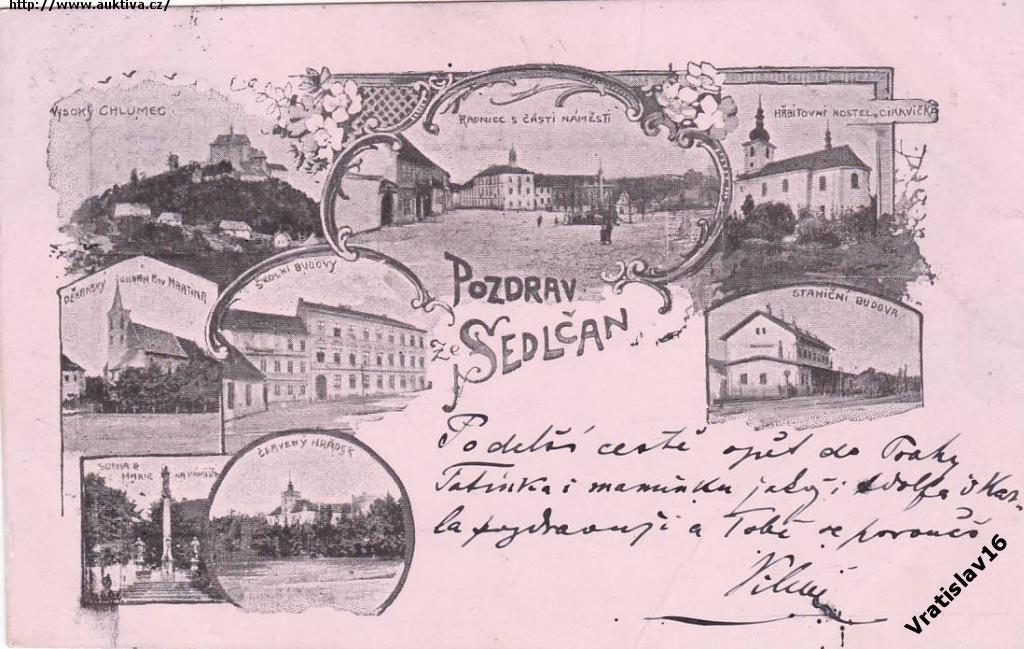 http://www.auktiva.cz/
VYSOKÝ CHLUMEC
RADNICE S ČÁSTÍ NÁMĚSTÍ
HŘBITOVNÍ KOSTEL „CIRKVIČKA
DĚKANSKÝ CHRÁM P SV MARTINA
ŠKOLNÍ BUDOVY
POZDRAV
ZE SEDLČAN
STANIČNÍ BUDOVA
SOCHA P. MARIE NA NÁMĚSTÍ
ČERVENÝ HRÁDEK
Po delší cestě opět do Prahy
Tatínka i maminku jakož i Adolfa i Kar-
la pozdravuji a Tobě se poroučí
Vratislav16